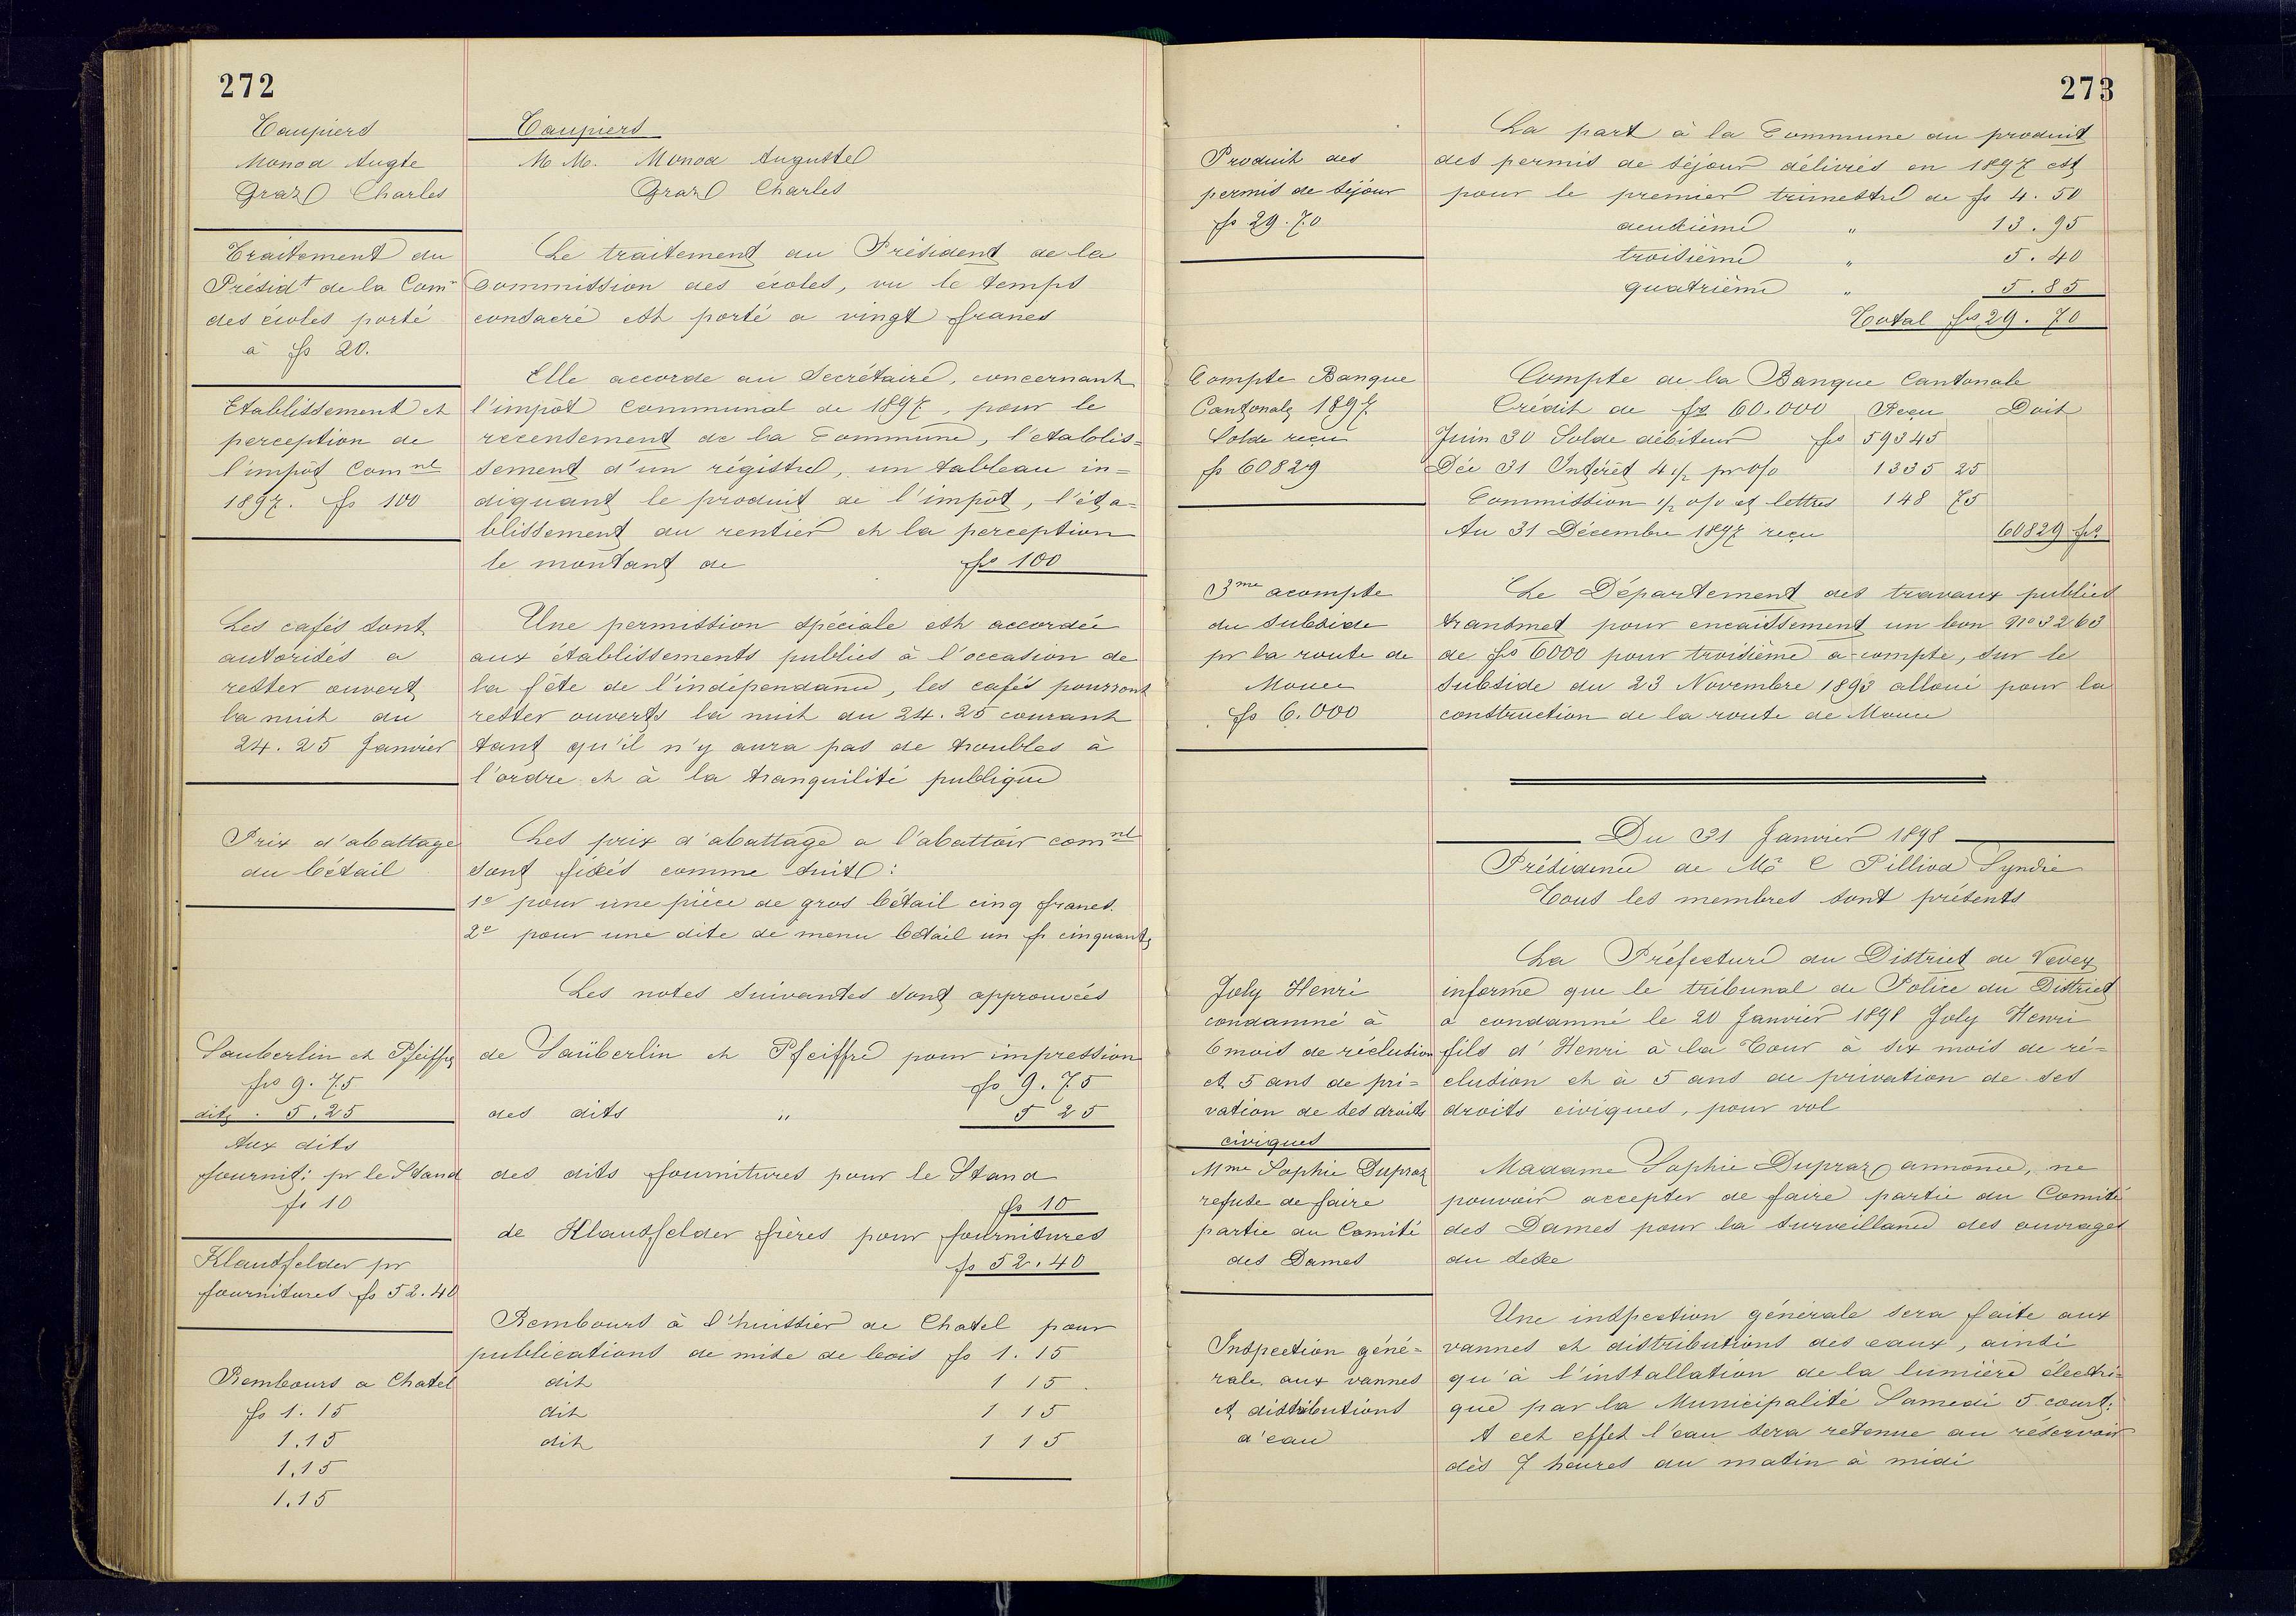 272
Taupiers
Monod Augte
Graz Charles
Taupiers
M M. Monod Auguste
Graz Charles
Traitement du
Présidt de la Comn
des écoles porté
à fs 20.
Le traitement du Président de la
Commission des écoles, vu le temps
consacré est porté a vingt francs
Etablissement et
perception de
l'impôt Comnl
1897. fs 100
Elle accorde au Secrétaire, concernant
l'impôt Communal de 1897, pour le
recensement de la Commune, l'établis=
sement d'un régistre, un tableau in=
diquant le produit de l'impôt, l'éta=
blissement du rentier et la perception
le montant de fs 100
Les cafés sont
autorisés a
rester ouvert
la nuit du
24.25 Janvier
Une permission spéciale est accordée
aux établissements publics à l'occasion de
la fête de l'indépendance, les cafés pourront
rester ouverts la nuit du 24.25 courant
tant qu'il n'y aura pas de troubles à
l'ordre et à la tranquilité publique
Prix d'abattage
du bétail
Les prix d'abattage a l'abattoir comnl
sont fixés comme suit :
1o pour une pièce de gros bétail cinq francs.
2o pour une dite de menu bétail un fr cinquante
Les notes suivantes sont approuvées
Sauberlin et Pfeiffer
fs 9.75
dits . 5.25
de Saüberlin et Pfeiffre pour impression
fs 9.75
des dits " 5 25
Aux dits
fournit: pr le Stand
fs 10
des dits fournitures pour le Stand
fs 10
Klausfelder pr
fournitures fs 52.40
de Klausfelder frères pour fournitures
fs 52.40
Rembours a Chatel
fs 1.15
1.15
1.15
1.15
Rembours à l'huissier de Chatel pour
publications de mise de bois fs 1.15
dit 1 15
dit 1 15
dit 1 15
273
Produit des
permis de séjour
fs 29.70
La part à la Commune du produit
des permis de séjour délivrés en 1897 est
pour le premier trimestre de fs 4.50
deuxième " 13.95
troisième " 5.40
quatrième " 5.85
Total fs 29.70
Compte Banque
Cantonale 1897.
Solde reçu
fs 60829
Compte de la Banque Cantonale
Crédit de fs 60.000 Reçu Doit
Juin 30 Solde débiteur fs 59345
Déc 31 Intérêt 4 1/2 pr o/o 1335 25
Commission 1/2 o/o et lettres 148 75
Au 31 Décembre 1897 reçu 60829 fs
3me acompte
du subside
pr la route de
Mouce
fs 6.000
Le Département des travaux publics
transmet pour encaissement un bon No 3263
de fs 6000 pour troisième a-compte, sur le
subside du 23 Novembre 1893 alloué pour la
construction de la route de Mouce
Du 31 Janvier 1898
Présidence de Mr C Pilliod Syndic
Tous les membres sont présents
Joly Henri
condamné à
6 mois de réclusion
et 5 ans de pri=
vation de ses droits
civiques
La Préfecture du District de Vevey
informe que le tribunal de Police du District
a condamné le 20 Janvier 1898 Joly Henri
fils d'Henri à la Tour à six mois de ré=
clusion et à 5 ans de privation de ses
droits civiques, pour vol
Mme Sophie Dupraz
refuse de faire
partie du Comité
des Dames
Madame Sophie Dupraz annonce, ne
pouvoir accepter de faire partie du Comité
des Dames pour la surveillance des ouvrages
du sexe
Inspection géné=
rale aux vannes
et distributions
d'eau
Une inspection générale sera faite aux
vannes et distributions des eaux, ainsi
qu'à l'installation de la lumière électri=
que par la Municipalité Samedi 5 court.
A cet effet l'eau sera retenue au réservoir
dès 7 heures du matin à midi